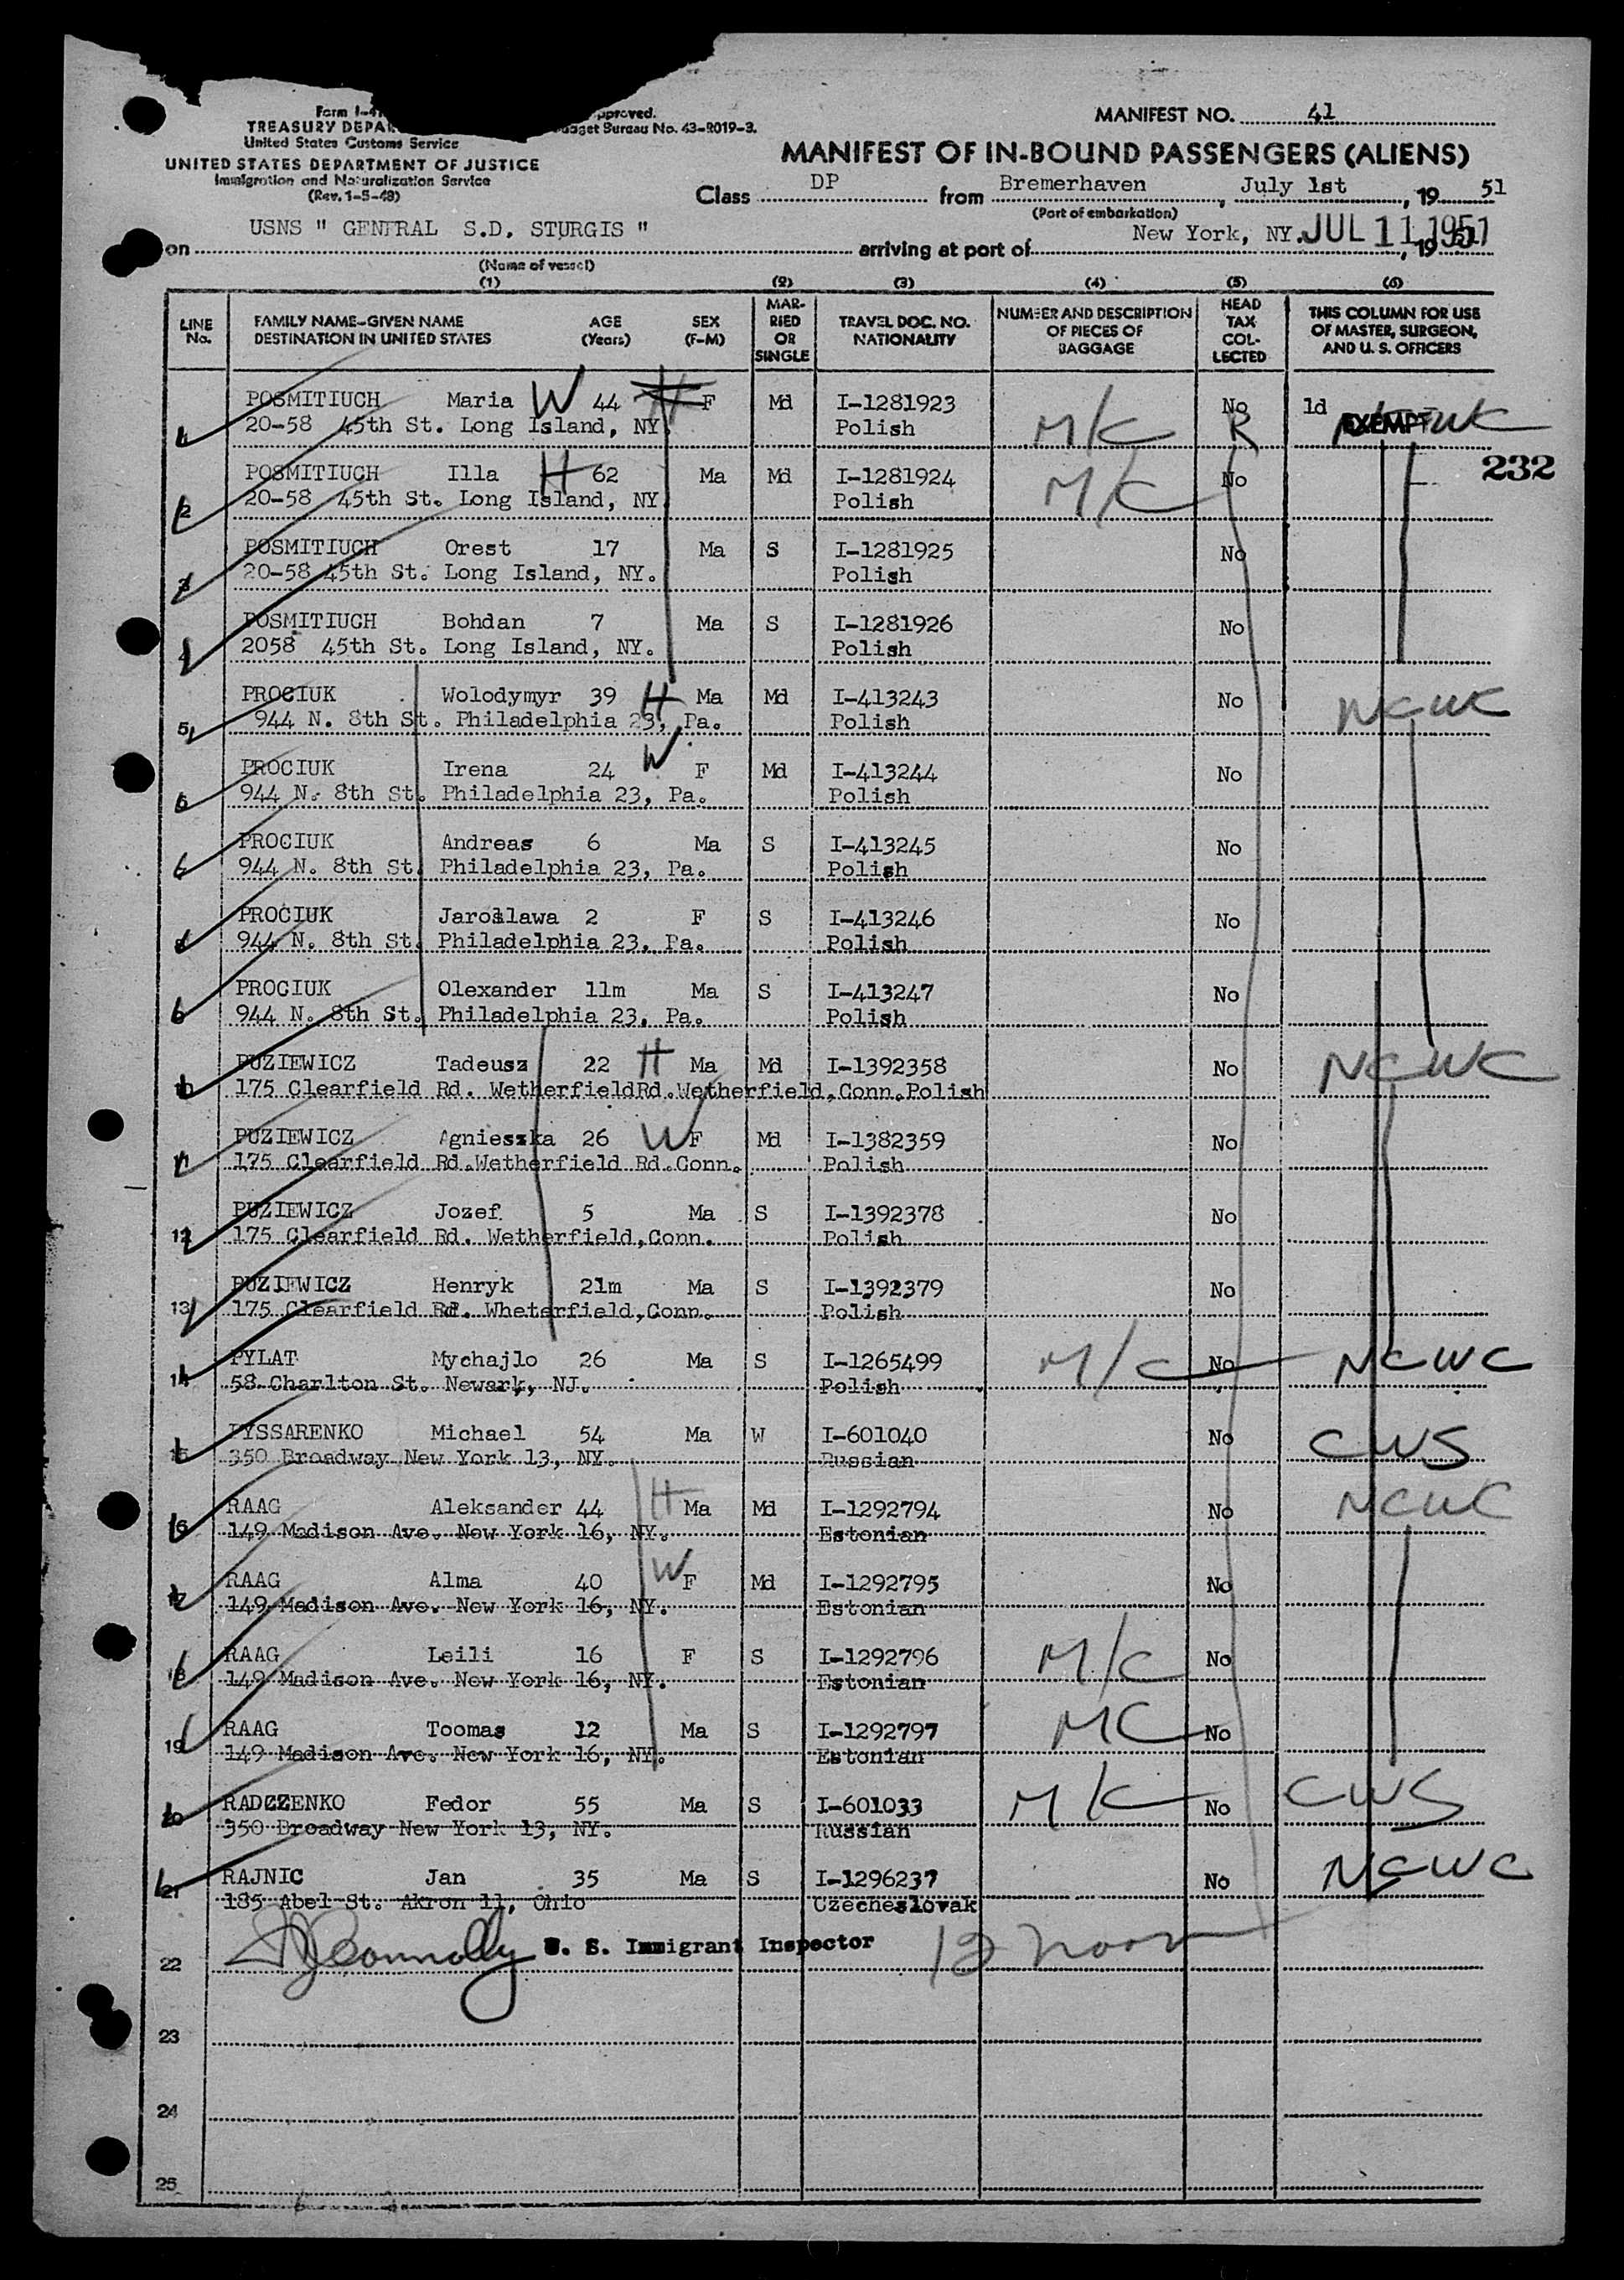 Form I-41
TREASURY DEPAR
United States Customs Service
UNITED STATES DEPARTMENT OF JUSTICE
Immigration and Naturalization Service
(Rev. 1-5-48)
pproved.
Budget Bureau No. 43-R019-3.
MANIFEST NO. 41
MANIFEST OF IN-BOUND PASSENGERS (ALIENS)
Class DP from Bremerhaven, July 1st, 19 51
(Port of embarkation)
on USNS " GENERAL S.D. STURGIS " arriving at port of New York, NY. JUL 11 1951, 19
(Name of vessel)
(1) (2) (3) (4) (5) (6)
LINE No. FAMILY NAME-GIVEN NAME DESTINATION IN UNITED STATES AGE (Years) SEX (F-M) MARRIED OR SINGLE TRAVEL DOC. NO. NATIONALITY NUMBER AND DESCRIPTION OF PIECES OF BAGGAGE HEAD TAX COLLECTED THIS COLUMN FOR USE OF MASTER, SURGEON, AND U. S. OFFICERS
1 POSMITIUCH Maria W 44 H F Md I-1281923 M/C No ld EXEMPT NCWC
20-58 45th St. Long Island, NY. Polish R
232
2 POSMITIUCH Illa H 62 Ma Md I-1281924 M/C No
20-58 45th St. Long Island, NY Polish
3 POSMITIUCH Orest 17 Ma S I-1281925 No
20-58 45th St. Long Island, NY. Polish
4 POSMITIUCH Bohdan 7 Ma S I-1281926 No
2058 45th St. Long Island, NY. Polish
5 PROCIUK Wolodymyr 39 H Ma Md I-413243 No NCWC
944 N. 8th St. Philadelphia 23, Pa. Polish
6 PROCIUK Irena 24 W F Md I-413244 No
944 N. 8th St. Philadelphia 23, Pa. Polish
PROCIUK Andreas 6 Ma S I-413245 No
944 N. 8th St. Philadelphia 23, Pa. Polish
8 PROCIUK Jaroslawa 2 F S I-413246 No
944 N. 8th St. Philadelphia 23, Pa. Polish
PROCIUK Olexander 11m Ma S I-413247 No
944 N. 8th St. Philadelphia 23, Pa. Polish
10 PUZIEWICZ Tadeusz 22 H Ma Md I-1392358 No NCWC
175 Clearfield Rd. WetherfieldRd.Wetherfield,Conn.Polish
11 PUZIEWICZ Agnieszka 26 W F Md I-1382359 No
175 Clearfield Rd.Wetherfield Rd.Conn. Polish
12 PUZIEWICZ Jozef 5 Ma S I-1392378 No
175 Clearfield Rd. Wetherfield,Conn. Polish
13 PUZIEWICZ Henryk 21m Ma S I-1392379 No
175 Clearfield Rd. Wheterfield,Conn. Polish
14 PYLAT Mychajlo 26 Ma S I-1265499 M/C No NCWC
58 Charlton St. Newark, NJ. Polish
15 PYSSARENKO Michael 54 Ma W I-601040 No CWS
350 Broadway New York 13, NY. Russian
16 RAAG Aleksander 44 H Ma Md I-1292794 No NCWC
149 Madison Ave. New York 16, NY. Estonian
17 RAAG Alma 40 W F Md I-1292795 No
149 Madison Ave. New York 16, NY. Estonian
18 RAAG Leili 16 F S I-1292796 M/C No
149 Madison Ave. New York 16, NY. Estonian
19 RAAG Toomas 12 Ma S I-1292797 MC No
149 Madison Ave. New York 16, NY. Estonian
20 RADCZENKO Fedor 55 Ma S I-601033 M/C No CWS
350 Broadway New York 13, NY. Russian
21 RAJNIC Jan 35 Ma S I-1296237 No NCWC
185 Abel St. Akron 11, Ohio Czecheslovak
22 Connolly U. S. Immigrant Inspector 12 noon
23
24
25